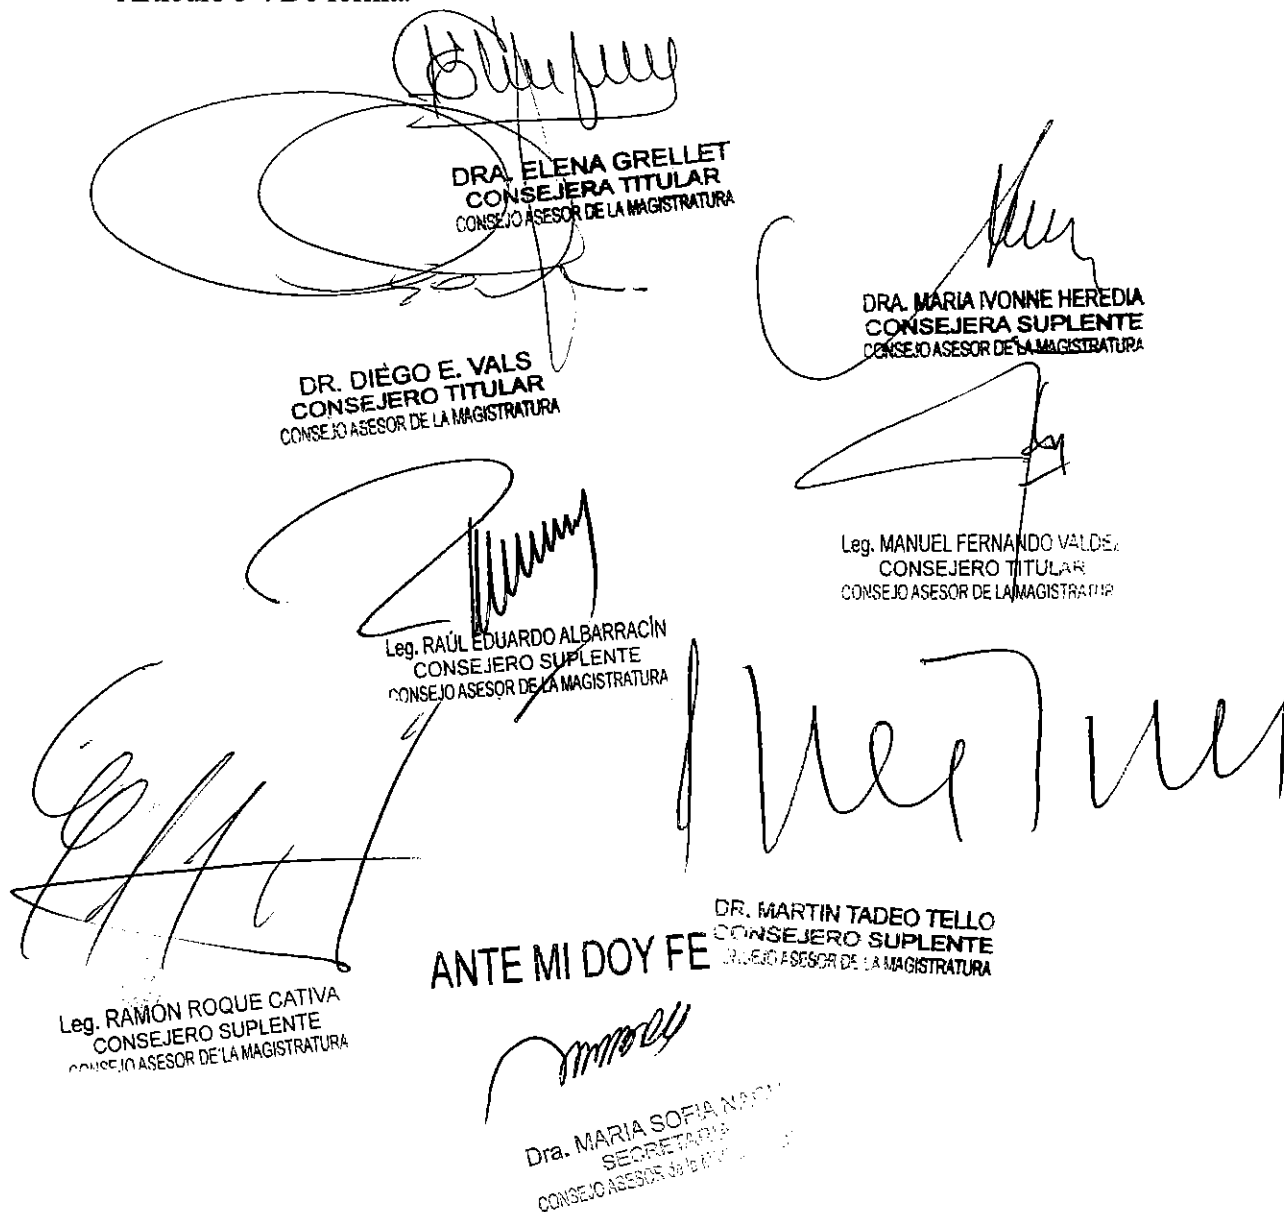 DRA. ELENA GRELLET
CONSEJERA TITULAR
CONSEJO ASESOR DE LA MAGISTRATURA
DRA. MARIA IVONNE HEREDIA
CONSEJERA SUPLENTE
CONSEJO ASESOR DE LA MAGISTRATURA
DR. DIEGO E. VALS
CONSEJERO TITULAR
CONSEJO ASESOR DE LA MAGISTRATURA
Leg. MANUEL FERNANDO VALDEZ
CONSEJERO TITULAR
CONSEJO ASESOR DE LA MAGISTRATUR
Leg. RAÚL EDUARDO ALBARRACÍN
CONSEJERO SUPLENTE
CONSEJO ASESOR DE LA MAGISTRATURA
DR. MARTIN TADEO TELLO
CONSEJERO SUPLENTE
CONSEJO ASESOR DE LA MAGISTRATURA
ANTE MI DOY FE
Leg. RAMÓN ROQUE CATIVA
CONSEJERO SUPLENTE
CONSEJO ASESOR DE LA MAGISTRATURA
Dra. MARIA SOFIA
SECRETARIA
CONSEJO ASESOR de la